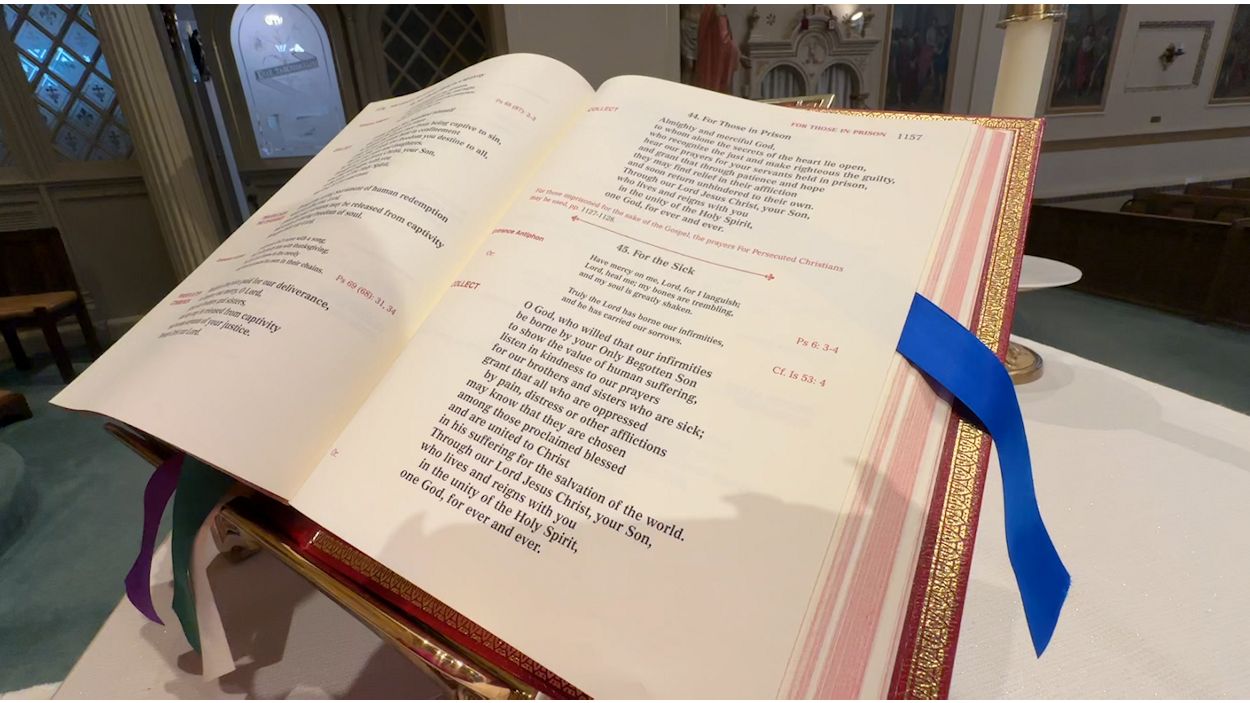 Ps 68 (67): 2-3
from being captive to sin,
in confinement
freedom you destine to all,
your Son,
of human redemption
may be released from captivity
freedom of soul.
with a song,
with thanksgiving,
in their chains.
Ps 69 (68): 31, 34
for our deliverance,
O Lord,
sisters,
released from captivity
of your justice.
Lord.
FOR THOSE IN PRISON 1157
44. For Those in Prison
COLLECT
Almighty and merciful God,
to whom alone the secrets of the heart lie open,
who recognize the just and make righteous the guilty,
hear our prayers for your servants held in prison,
and grant that through patience and hope
they may find relief in their affliction
and soon return unhindered to their own.
Through our Lord Jesus Christ, your Son,
who lives and reigns with you
in the unity of the Holy Spirit,
one God, for ever and ever.
For those imprisoned for the sake of the Gospel, the prayers For Persecuted Christians
may be used, pp. 1127-1128.
45. For the Sick
Entrance Antiphon
Have mercy on me, Lord, for I languish;
Lord, heal me; my bones are trembling,
and my soul is greatly shaken.
Ps 6: 3-4
Or:
Truly the Lord has borne our infirmities,
and he has carried our sorrows.
Cf. Is 53: 4
COLLECT
O God, who willed that our infirmities
be borne by your Only Begotten Son
to show the value of human suffering,
listen in kindness to our prayers
for our brothers and sisters who are sick;
grant that all who are oppressed
by pain, distress or other afflictions
may know that they are chosen
among those proclaimed blessed
and are united to Christ
in his suffering for the salvation of the world.
Through our Lord Jesus Christ, your Son,
who lives and reigns with you
in the unity of the Holy Spirit,
one God, for ever and ever.
Or: